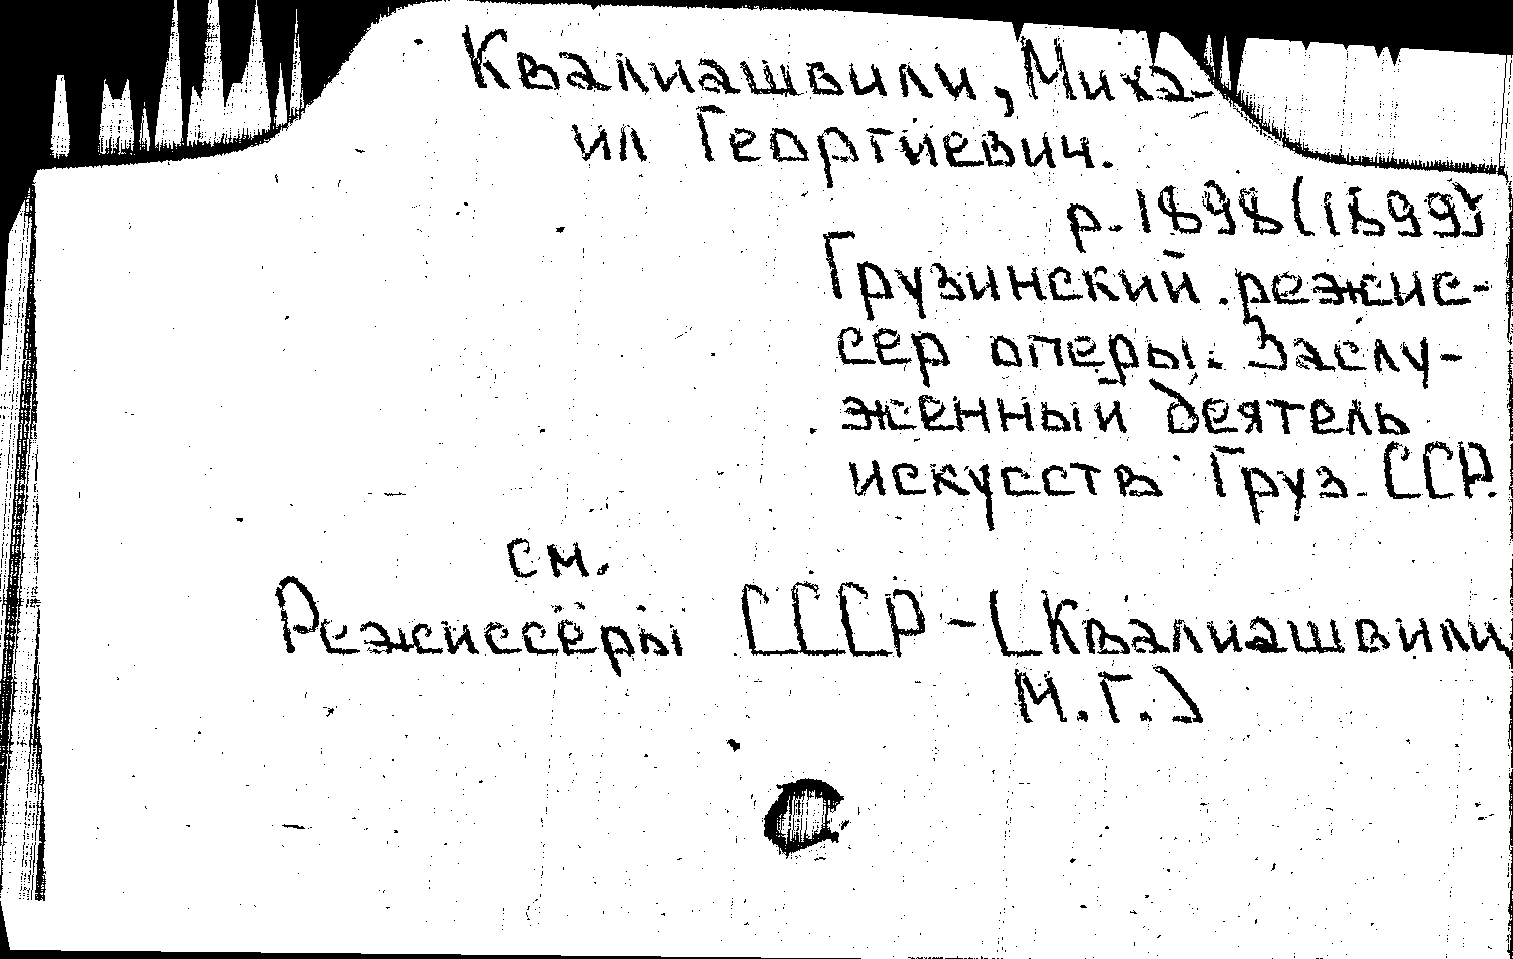 Квалиашвили, Миха-
ил Георгиевич.
р. 1898 (1899)
Грузинский режис-
сер оперы. Заслу-
женный деятель
искусств Груз. ССР.
см.
Режиссёры СССР - (Квалиашвили,
М.Г.)